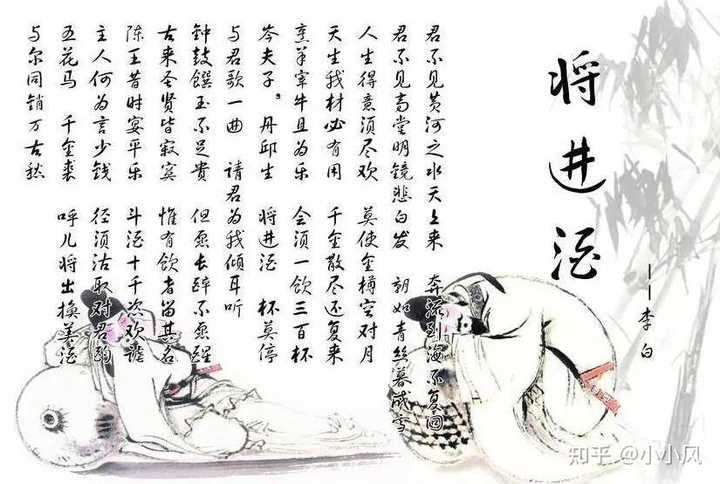 将进酒
——李白
君不见黄河之水天上来 奔流到海不复回
君不见高堂明镜悲白发 朝如青丝暮成雪
人生得意须尽欢 莫使金樽空对月
天生我材必有用 千金散尽还复来
烹羊宰牛且为乐 会须一饮三百杯
岑夫子。丹邱生 将进酒 杯莫停
与君歌一曲 请君为我倾耳听
钟鼓馔玉不足贵 但愿长醉不愿醒
古来圣贤皆寂寞 惟有饮者留其名
陈王昔时宴平乐 斗酒十千恣欢谑
主人何为言少钱 径须沽取对君酌
五花马 千金裘 呼儿将出换美酒
与尔同销万古愁
知乎 @小小风